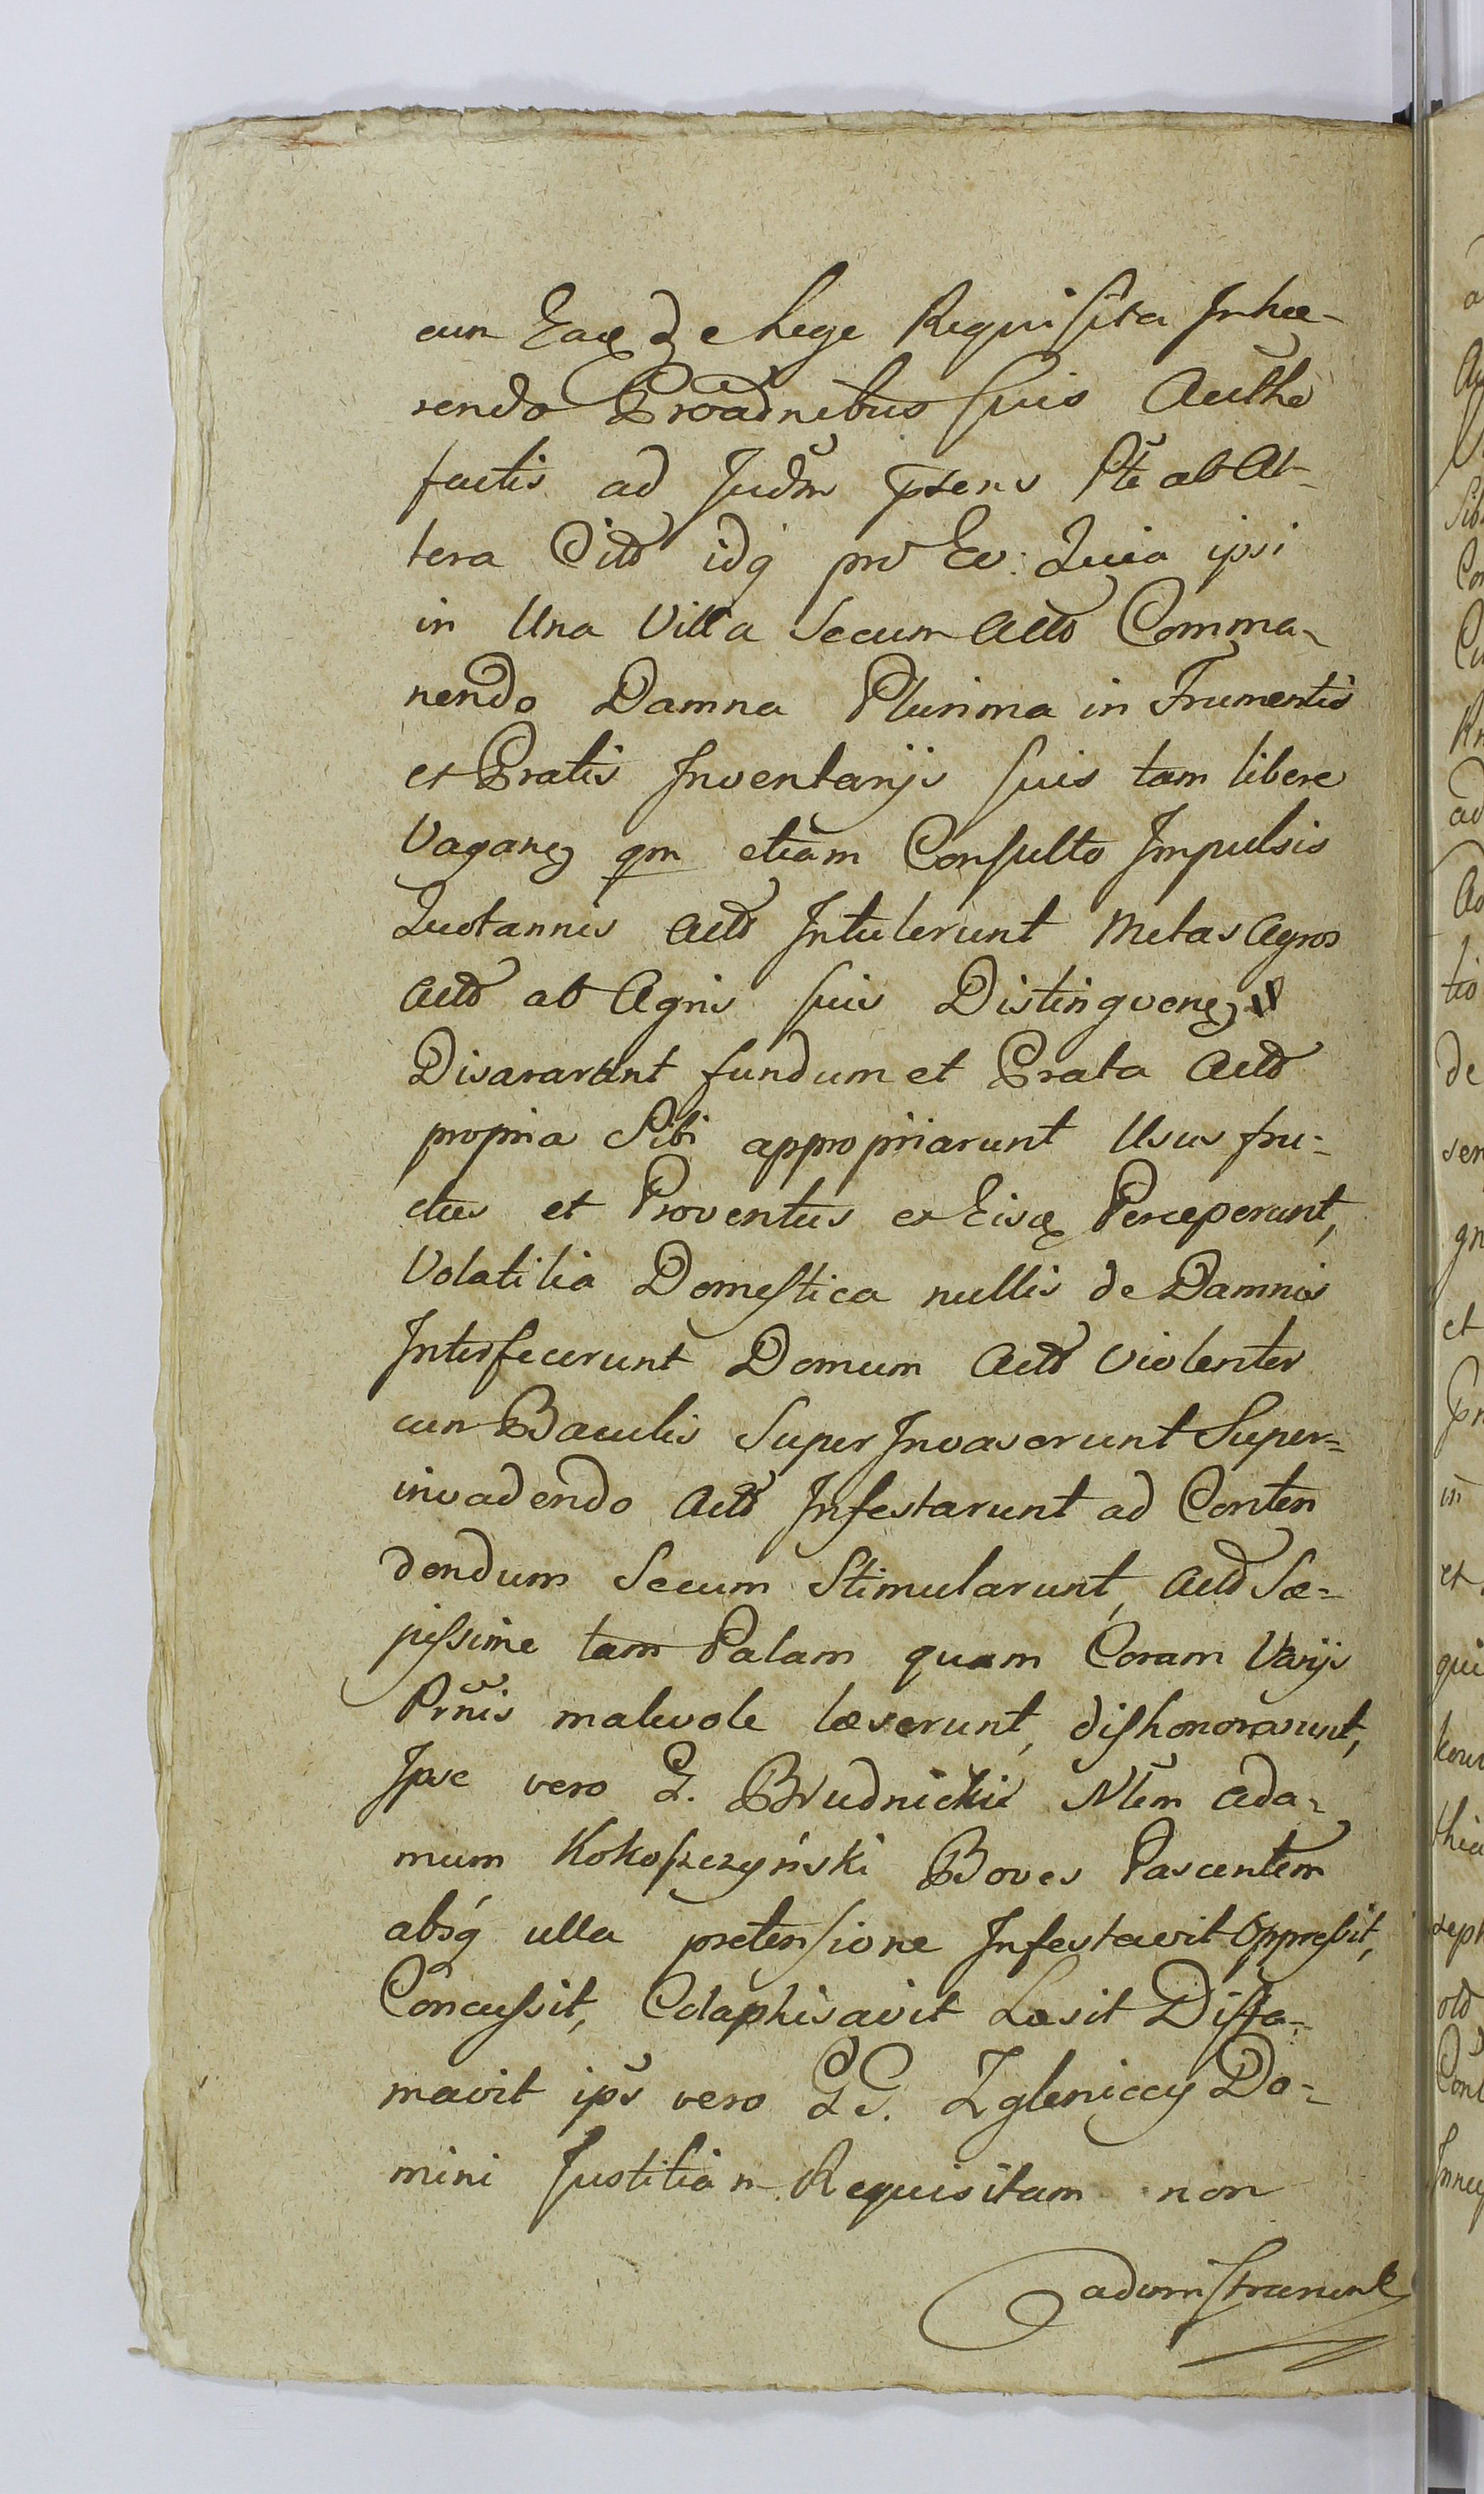 cum Eaq de Lege Requisita Inhæ-
rendo Proadnibus suis Authe
factis ad Judm psens Pte ab Al-
tera Citt idq pro Eo: Quia ipsi
in Una Villa Secum Actt Comma-
nendo Damna Plurima in Frumentis
et Pratis Inventarijs suis tam libere
Vagans qm etiam Consulto Impulsis
Quotannis Actt Intulerunt Metas Agros
Actt ab Agris suis Distinguens
Disararunt fundum et Prata Actt
propria Sibi appropriarunt Usus fru-
ctus et Proventus ex Eisq Perceperunt,
Volatilia Domestica nullis de Damnis
Interfecerunt Domum Actt violenter
cum Baculis Super Invaserunt Super=
invadendo Actt Infestarunt ad Conten
dendum Secum Stimularunt, Actt Sæ=
pissime tam Palam quam Coram Varijs
Prnis malevole læserunt, dishonorarunt,
Ipse vero G. Brudnicki Nlem Ada-
mum Kokoszczyński Boves Pascentem
absq ulla pretensione Infestavit Oppressit,
Concussit, Colaphisavit Læsit Diffa-
mavit ips vero GG. Zgleniccy Do-
mini Justitiam Requisitam non
adminstrarunt